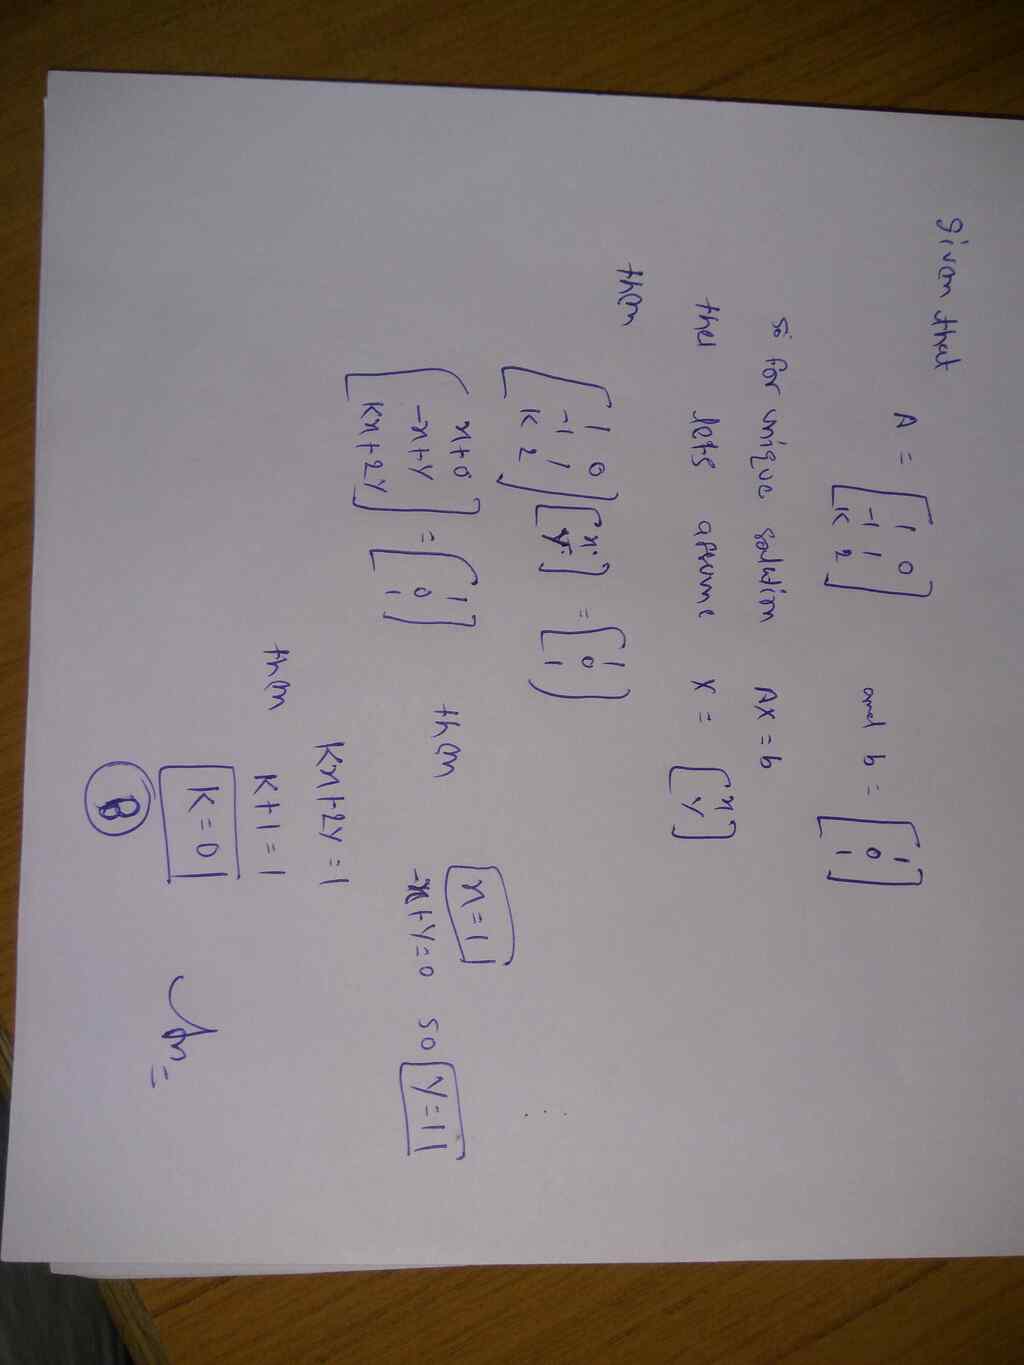 Given that
A = [1 0; -1 1; K 2] and b = [1; 0; 1]
so for unique solution AX = b
the lets assume X = [x; y]
then
[1 0; -1 1; K 2] [x; y] = [1; 0; 1]
[x+0; -x+y; Kx+2y] = [1; 0; 1] then x=1
-x+y=0 so y=1
Kx+2y=1
then K+1=1
K=0 An=
B